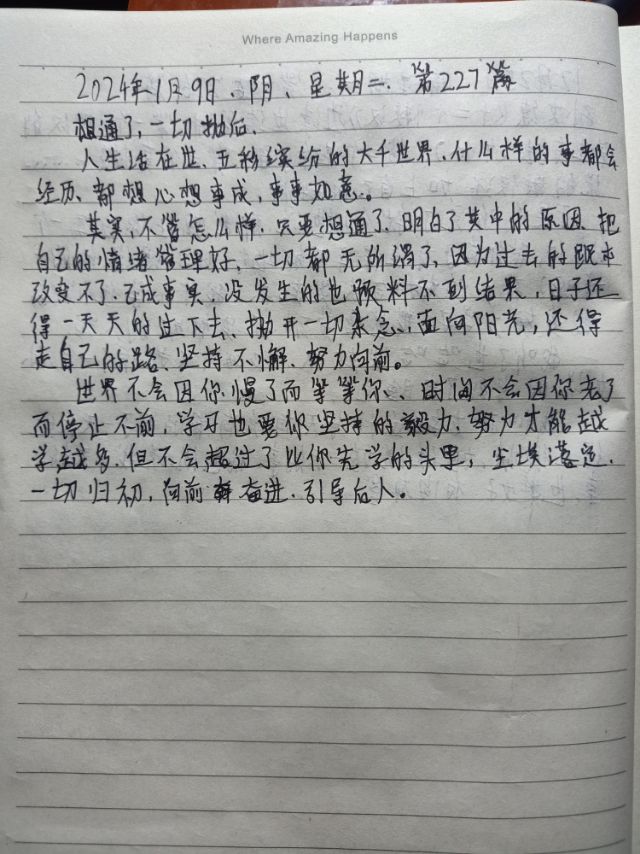 Where Amazing Happens
2024年1月9日、阴、星期二. 第227篇
想通了,一切抛后.
人生活在世、五彩缤纷的大千世界.什么样的事都会
经历、都想心想事成,事事如意。
其实,不管怎么样.只要想通了.明白了其中的原因.把
自己的情绪管理好、一切都无所谓了,因为过去的既
改变不了.已成事实,没发生的也预料不到结果,日子还
得一天天的过下去、抛开一切杂念,面向阳光,还得
走自己的路、坚持不懈.努力向前。
世界不会因你慢了而等等你、时间不会因你老了
而停止不前,学习也要你坚持的毅力.努力才能越
学越多.但不会超过了比你先学的头里,尘埃落定.
一切归初,向前奋进.引导后人。